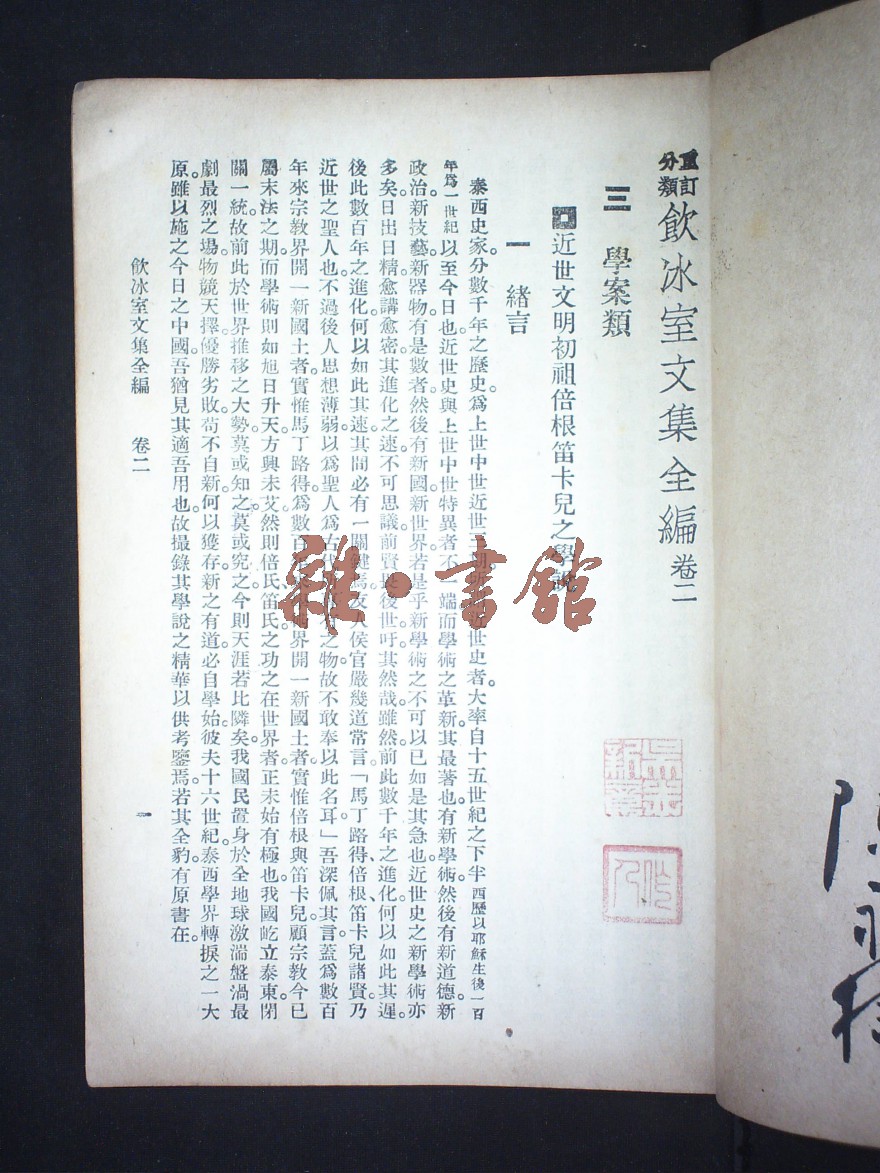 重訂分類飲冰室文集全編卷二
三 學案類
近世文明初祖倍根笛卡兒之學說
一 緒言
泰西史家。分數千年之歷史。爲上世中世近世三期。所近世史者。大率自十五世紀之下半西歷以耶穌生後一百
年爲一世紀以至今日也。近世史與上世中世特異者。不一端。而學術之革新。其最著也。有新學術。然後有新道德。新
政治。新技藝。新器物。有是數者。然後有新國新世界。若是乎新學術之不可以已。如是其急也。近世史之新學術亦
多矣。日出日精。愈講愈密。其進化之速。不可思議。前賢畏後世。吁。其然哉。雖然。前此數千年之進化。何以如此其遲。
後此數百年之進化。何以如此其速。其間必有一關鍵焉。友人侯官嚴幾道常言「馬丁路得、倍根、笛卡兒諸賢。乃
近世之聖人也。不過後人思想薄弱。以爲聖人爲古代之物。故不敢奉以此名耳。」吾深佩其言。蓋爲數百
年來宗教界開一新國土者。實惟馬丁路得。爲數百界開一新國土者。實惟倍根與笛卡兒。顧宗教今已
屬末法之期。而學術則如旭日升天。方興未艾。然則倍氏笛氏之功之在世界者。正未始有極也。我國屹立泰東。閉
關一統。故前此於世界推移之大勢。莫或知之。莫或究之。今則天涯若比隣矣。我國民置身於全地球激湍盤渦最
劇最烈之場。物競天擇。優勝劣敗。苟不自新。何以獲存。新之有道。必自學始。彼夫十六世紀。泰西學界轉捩之一大
原。雖以施之今日之中國。吾猶見其適吾用也。故撮錄其學說之精華。以供考鑒焉。若其全豹。有原書在。
飲冰室文集全編 卷二
一
雜·書館